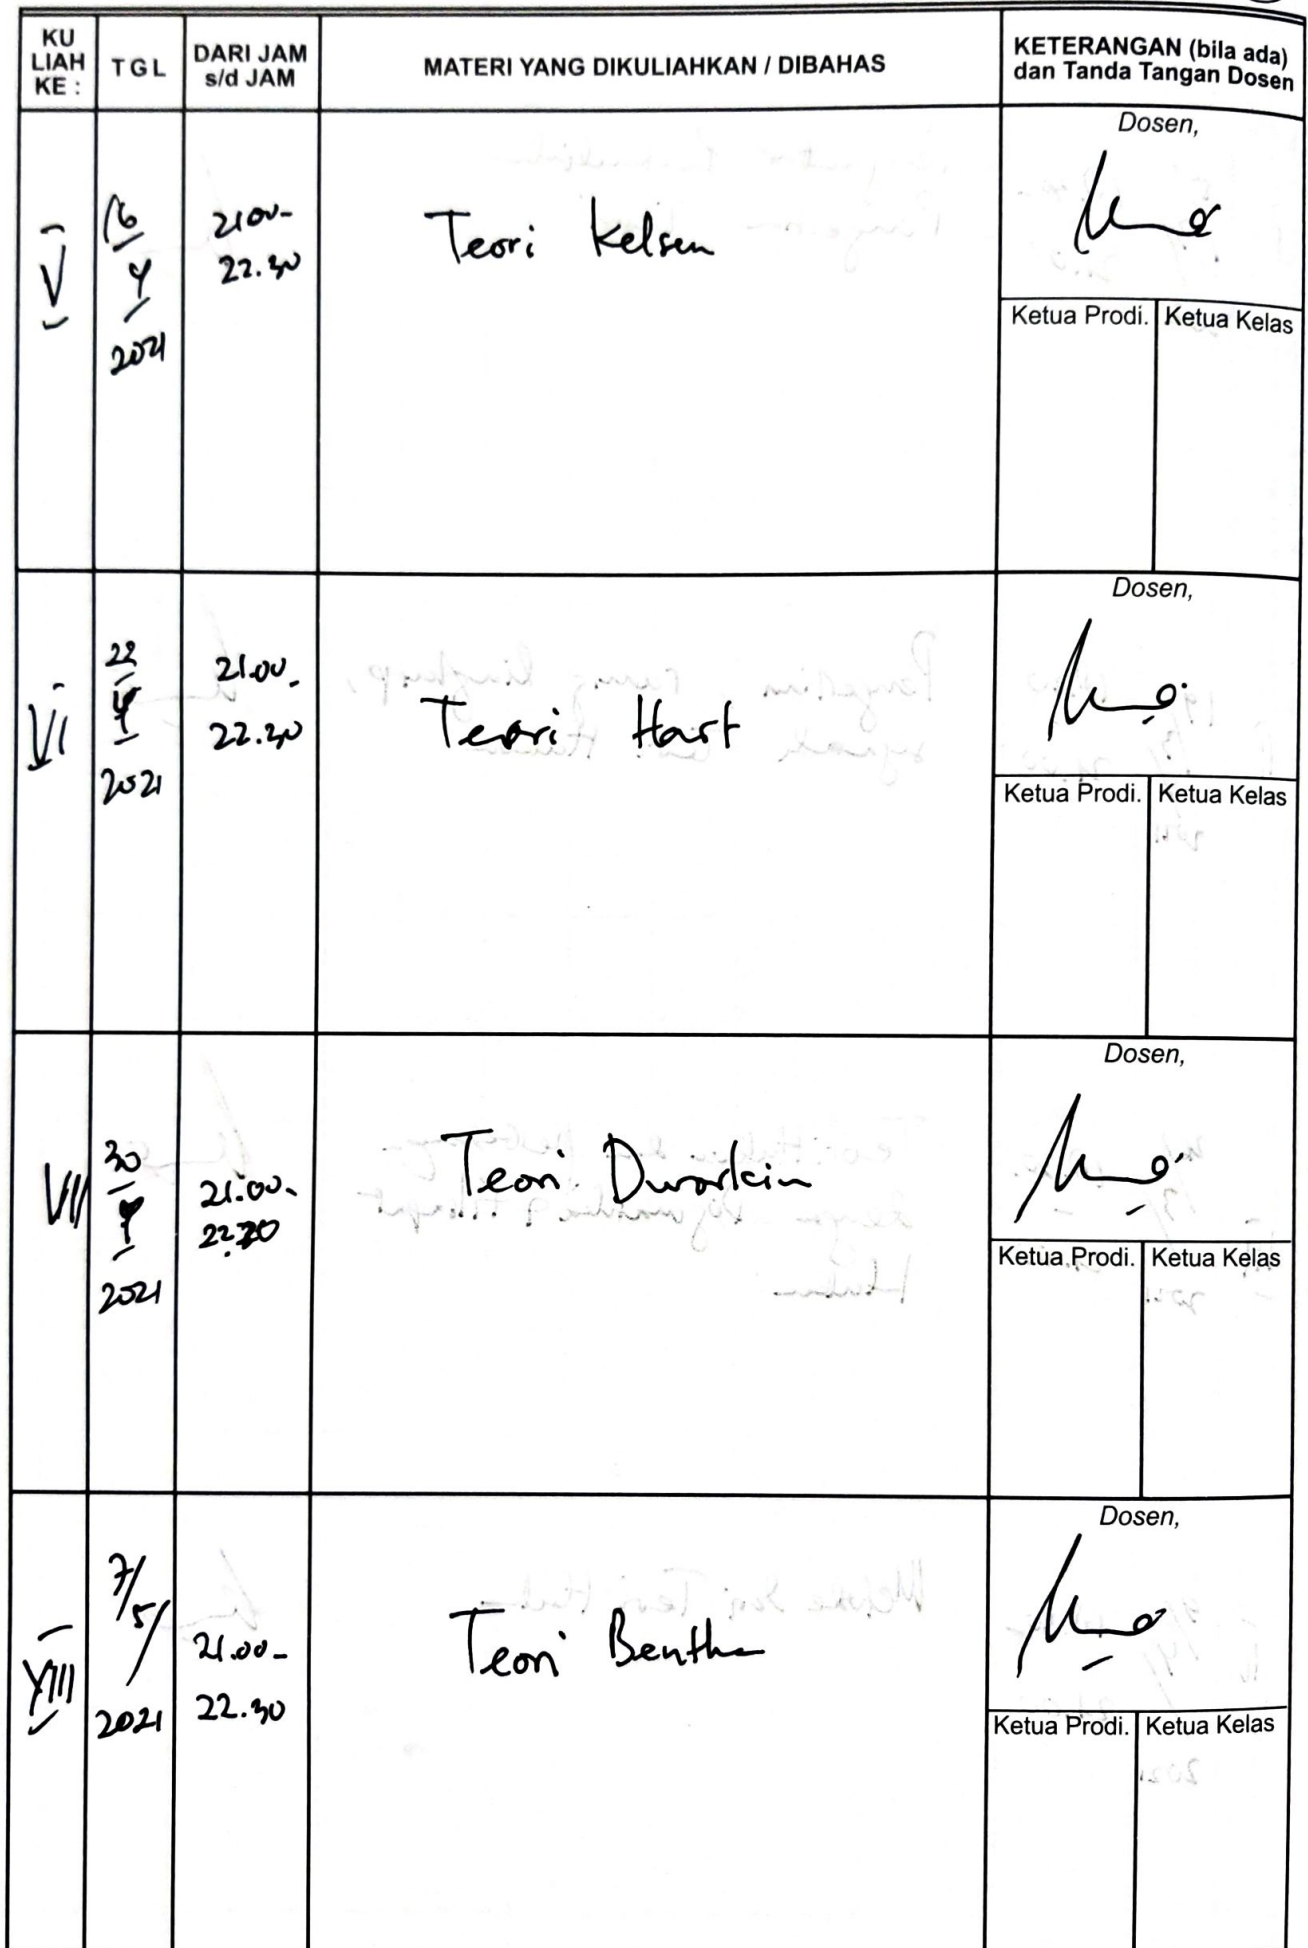 KU
LIAH
KE :
TGL
DARI JAM
s/d JAM
MATERI YANG DIKULIAHKAN / DIBAHAS
KETERANGAN (bila ada)
dan Tanda Tangan Dosen
V
16
4
2021
21.00-
22.30
Teori Kelsen
Dosen,
Ketua Prodi. Ketua Kelas
VI
22
4
2021
21.00-
22.30
Teori Hart
Dosen,
Ketua Prodi. Ketua Kelas
VII
30
4
2021
21.00-
22.30
Teori Dworkin
Dosen,
Ketua Prodi. Ketua Kelas
VIII
7/5/
2021
21.00-
22.30
Teori Bentha
Dosen,
Ketua Prodi. Ketua Kelas